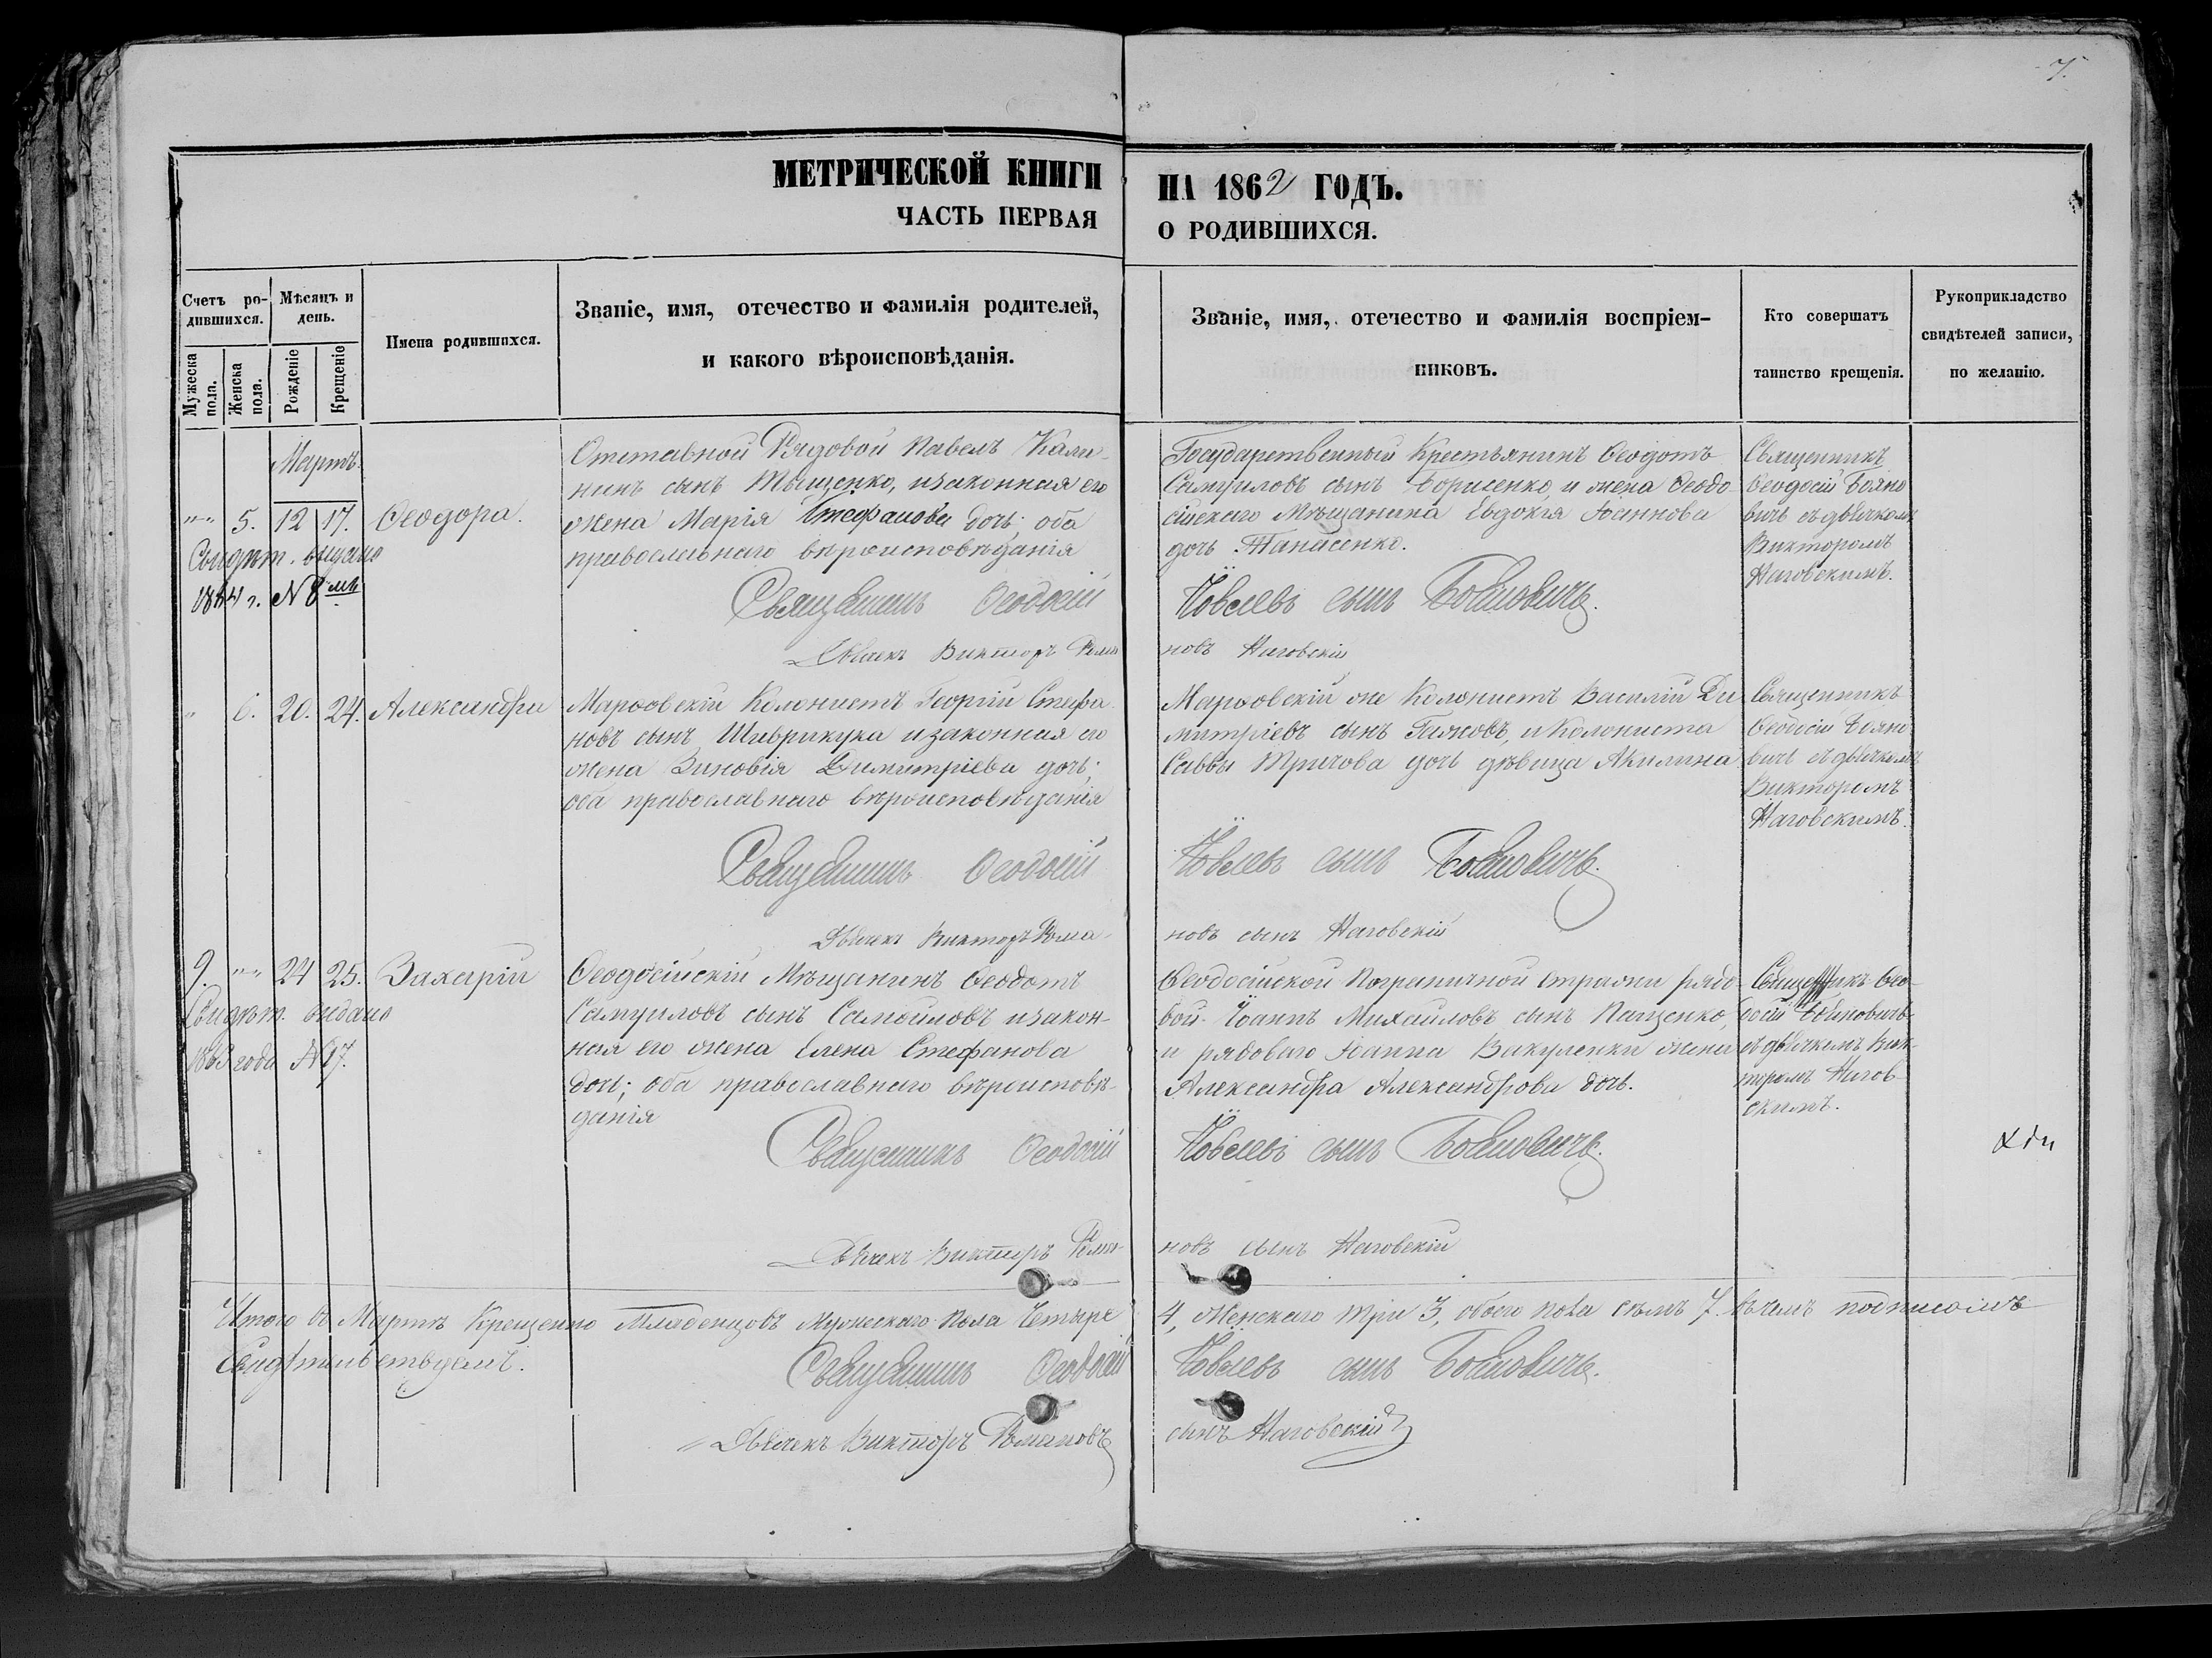 7.
МЕТРИЧЕСКОЙ КНИГИ НА 1862 ГОДЪ.
ЧАСТЬ ПЕРВАЯ О РОДИВШИХСЯ.
Счетъ родившихся.
Мужеска пола.
Женска пола.
Мѣсяцъ и день.
Рожденіе
Крещеніе
Имена родившихся.
Званіе, имя, отечество и фамилія родителей,
и какого вѣроисповѣданія.
Званіе, имя, отечество и фамилія воспріем-
никовъ.
Кто совершатъ
таинство крещенія.
Рукоприкладство
свидѣтелей записи,
по желанію.
Мартъ
5. 12 17. Ѳеодора.
Свидѣт. выдано
1884 г. N 8
Отставной Рядовой Павелъ Кали-
нинъ сынъ Тыщенко, и законная его
жена Марія Стефанова дочь: оба
православнаго вѣроисповѣданія
Государственный Крестьянинъ Ѳеодотъ
Самуиловъ сынъ Борисенко, и жена Ѳеодо-
сійскаго Мѣщанина Евдокія Іоаннова
дочь Танасенко.
Священникъ
Ѳеодосій Бояно
вичъ съ дьячкомъ
Викторомъ
Наговскимъ.
Священникъ Ѳеодосій Іовлевъ сынъ Бояновичъ.
Дьячекъ Викторъ Рома новъ Наговскій
6. 20. 24. Александра
Марѳовскій Колонистъ Георгій Стефа-
новъ сынъ Шаврикука и законная его
жена Зиновія Димитріева дочь;
оба православнаго вѣроисповѣданія
Марѳовскій же Колонистъ Василій Ди
митріевъ сынъ Гажовъ, и Колониста
Саввы Тричова дочь дѣвица Акилина
Священникъ
Ѳеодосій Бояно
вичъ съ дьячкомъ
Викторомъ
Наговскимъ.
Священникъ Ѳеодосій Іовлевъ сынъ Бояновичъ.
Дьячекъ Викторъ Рома- новъ сынъ Наговскій
9. 24 25. Захарій
Свидѣт. выдано
года N 17.
Ѳеодосійскій Мѣщанинъ Ѳеодотъ
Самуиловъ сынъ Самойловъ и закон-
ная его жена Елена Стефанова
дочь; оба православнаго вѣроисповѣ-
данія
Ѳеодосійской Пограничной стражи рядо
вой Іоаннъ Михайловъ сынъ Пащенко,
и рядоваго Іоанна Вакуленки жена
Александра Александрова дочь.
Священникъ Ѳео-
досій Бояновичъ
съ дьячкомъ Вик-
торомъ Нагов-
скимъ.
Священникъ Ѳеодосій Іовлевъ сынъ Бояновичъ.
Дьячекъ Викторъ Рома- новъ сынъ Наговскій
Итого въ Мартѣ Крещенно Младенцовъ Мужескаго Пола Четыре 4, Женскаго Три 3, обоего пола семъ 7. въ чемъ подписомъ
свидѣтельствуемъ.
Священникъ Ѳеодосій Іовлевъ сынъ Бояновичъ.
Дьячекъ Викторъ Романовъ сынъ Наговскій